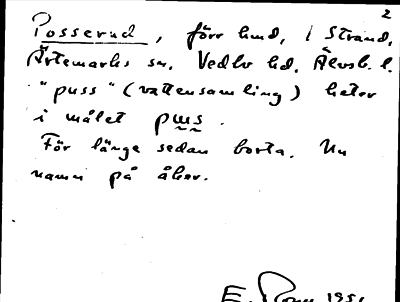 2
Posserud, förr lund, i Strand,
Ärtemarks sn. Vedbo hd. Älvsb. l.
"puss" (vattensamling) heter
i målet pus.
För länge sedan borta. Nu
namn på åker.
E. 1951